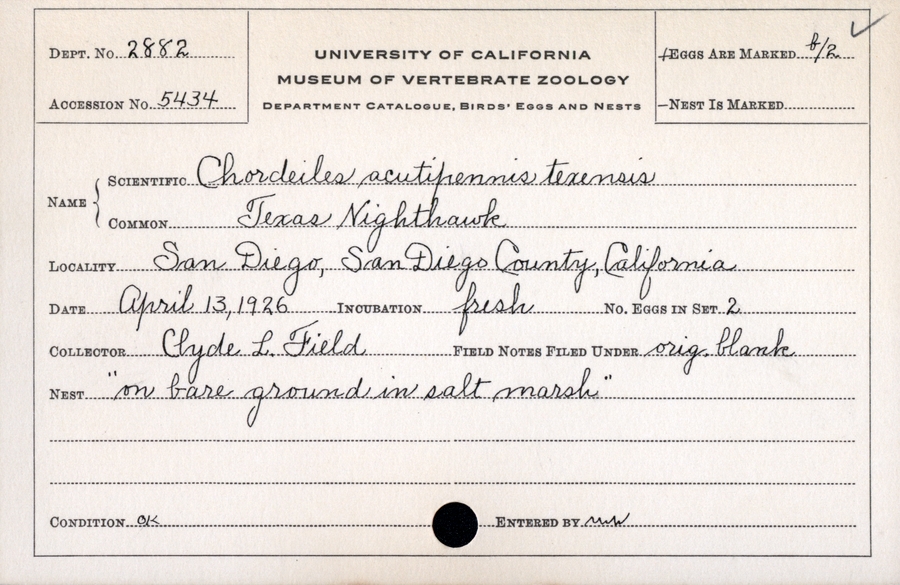 DEPT. No. 2882
UNIVERSITY OF CALIFORNIA
MUSEUM OF VERTEBRATE ZOOLOGY
DEPARTMENT CATALOGUE, BIRDS' EGGS AND NESTS
EGGS ARE MARKED b/2
ACCESSION No. 5434
NEST IS MARKED
NAME
SCIENTIFIC Chordeiles acutipennis texensis
COMMON Texas Nighthawk
LOCALITY San Diego, San Diego County, California
DATE April 13, 1926 INCUBATION fresh No. EGGS IN SET 2
COLLECTOR Clyde L. Field FIELD NOTES FILED UNDER orig. blank
NEST "on bare ground in salt marsh"
CONDITION OK ENTERED BY